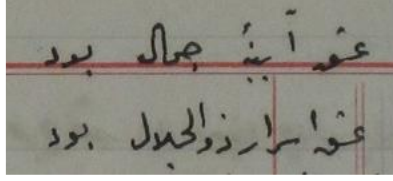 عشق آیینهٔ جمال بود
عشق اسرار ذوالجلال بود